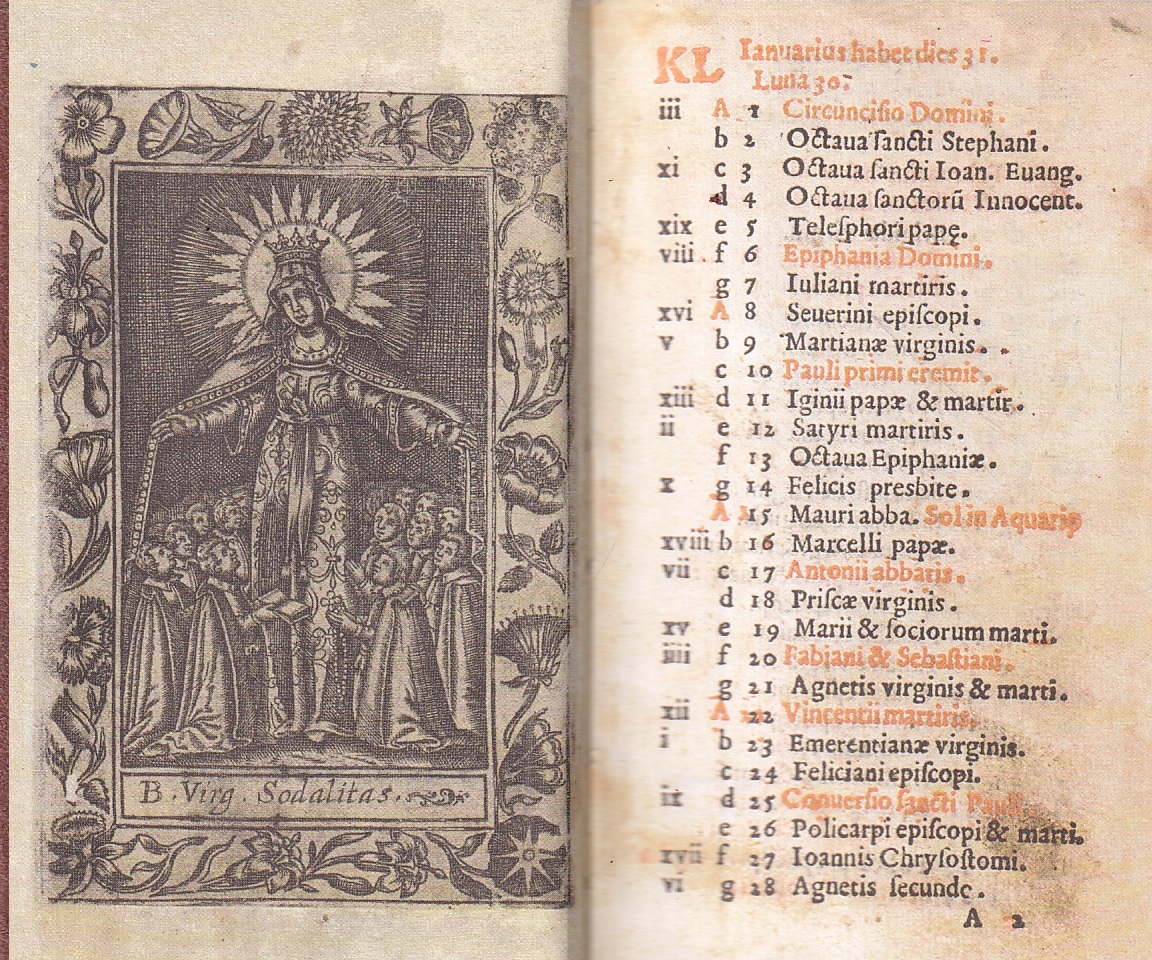 B. Virg. Sodalitas.
KL Ianuarius habet dies 31.
Luna 30.
iii A 1 Circuncisio Domini.
b 2 Octaua sancti Stephani.
xi c 3 Octaua sancti Ioan. Euang.
d 4 Octaua sanctorũ Innocent.
xix e 5 Telesphori papę.
viii. f 6 Epiphania Domini.
g 7 Iuliani martiris.
xvi A 8 Seuerini episcopi.
v b 9 Martianæ virginis.
c 10 Pauli primi eremit.
xiii d 11 Iginii papæ & martir.
ii e 12 Satyri martiris.
f 13 Octaua Epiphaniæ.
x g 14 Felicis presbite.
A 15 Mauri abba. Sol in Aquario
xviii b 16 Marcelli papæ.
vii c 17 Antonii abbatis.
d 18 Priscæ virginis.
xv e 19 Marii & sociorum marti.
iiii f 20 Fabiani & Sebastiani.
g 21 Agnetis virginis & marti.
xii A 22 Vincentii martiris.
i b 23 Emerentianæ virginis.
c 24 Feliciani episcopi.
ix d 25 Conuersio sancti Pauli.
e 26 Policarpi episcopi & marti.
xvii f 27 Ioannis Chrysostomi.
vi g 28 Agnetis secunde.
A 2